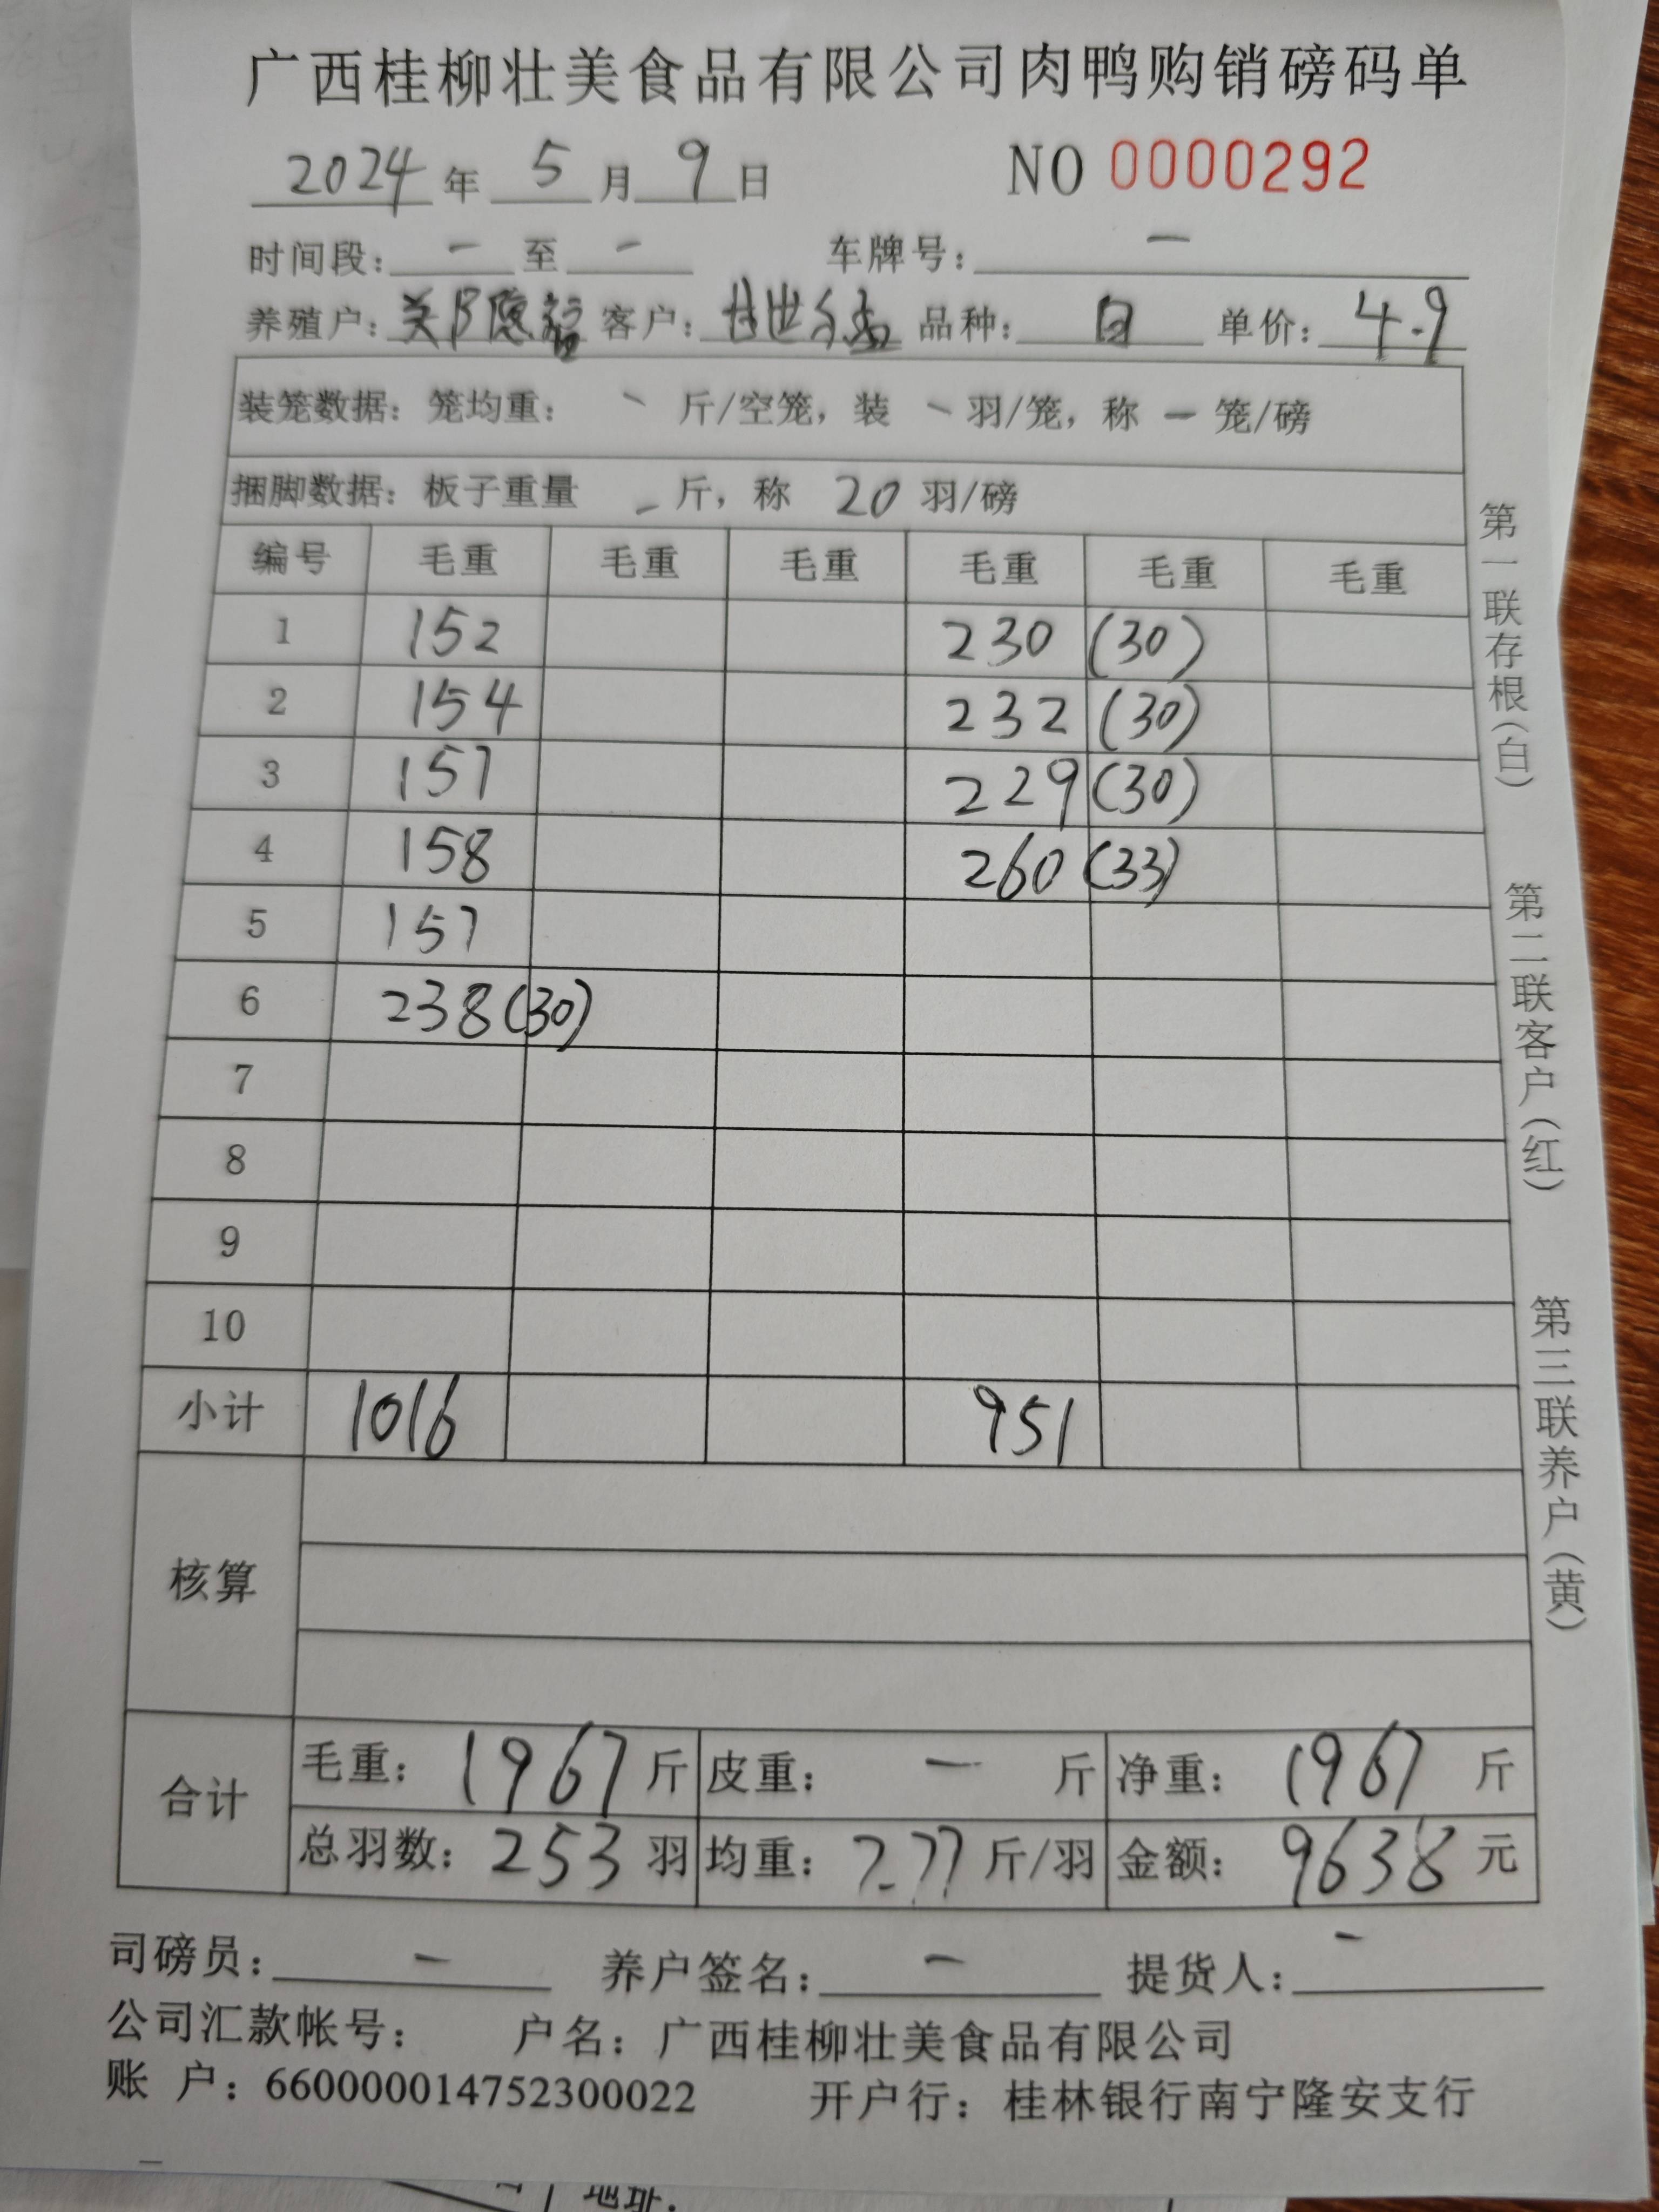 广西桂柳壮美食品有限公司肉鸭购销磅码单
2024 年 5 月 9 日 NO 0000292
时间段: - 至 - 车牌号: -
养殖户: 客户: 品种: 白 单价: 4.9
装笼数据: 笼均重: - 斤/空笼, 装 - 羽/笼, 称 - 笼/磅
捆脚数据: 板子重量 - 斤, 称 20 羽/磅
编号 毛重 毛重 毛重 毛重 毛重 毛重
1 152 230 (30)
2 154 232 (30)
3 157 229 (30)
4 158 260 (33)
5 157
6 238 (30)
7
8
9
10
小计 1016 951
核算
合计 毛重: 1967 斤 皮重: - 斤 净重: 1967 斤
总羽数: 253 羽 均重: 7.77 斤/羽 金额: 9638 元
司磅员: - 养户签名: - 提货人: -
公司汇款帐号: 户名: 广西桂柳壮美食品有限公司
账 户: 660000014752300022 开户行: 桂林银行南宁隆安支行
第一联存根(白) 第二联客户(红) 第三联养户(黄)
地址: